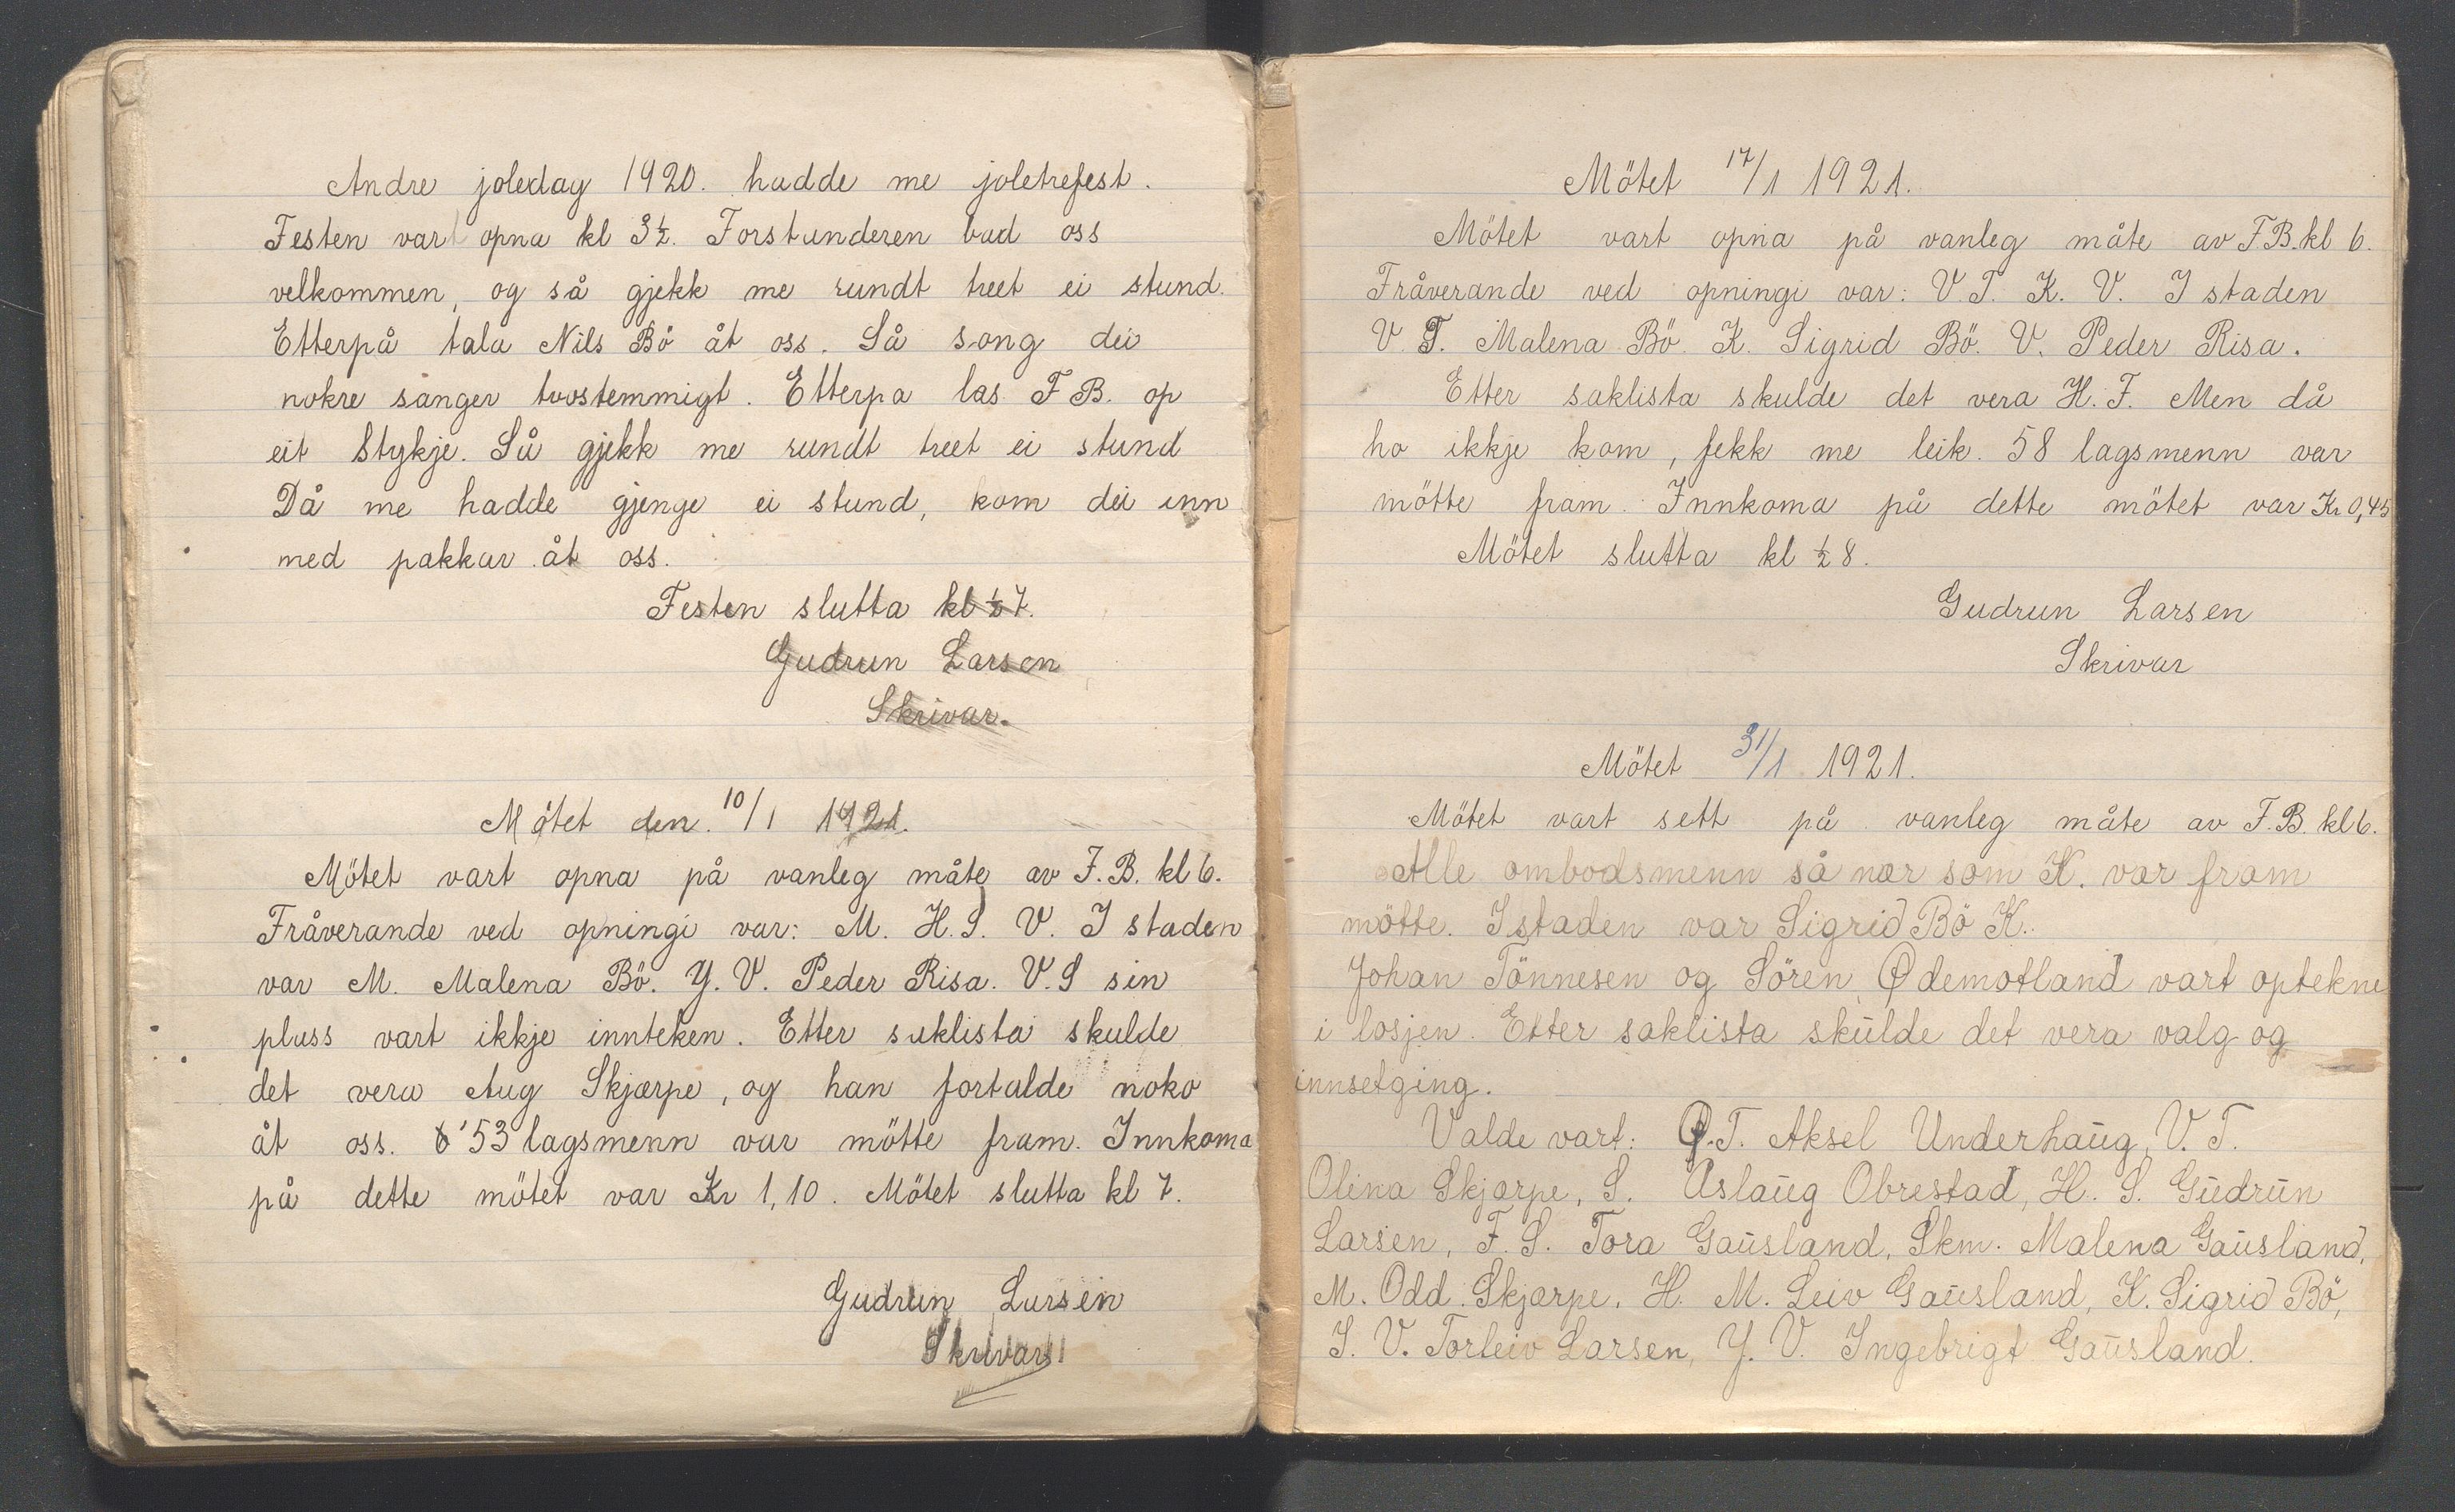 Andre joledag 1920. hadde me joletrefest.
Festen vart opna kl 3½. Forstanderen bad oss
velkommen, og så gjekk me rundt treet ei stund.
Etterpå tala Nils Bö åt oss. Så song dei
nokre sanger tvostemmigt. Etterpa las F.B. op
eit Stykje. Så gjekk me rundt treet ei stund
Då me hadde gjenge ei stund, kom dei inn
med pakkar åt oss.
Festen slutta kl ½ 7.
Gudrun Larsen
Skrivar.
Mötet den. 10/1 1921.
Mötet vart opna på vanleg måte av F.B. kl 6.
Fråverande ved opningi var: M. H.S. V. I staden
var M. Malena Bö. Y. V. Peder Risa. V.S sin
plass vart ikkje innteken. Etter saklista skulde
det vera Aug Skjærpe, og han fortalde noko
åt oss. 53 lagsmenn var mötte fram. Innkoma
på dette mötet var Kr 1,10. Mötet slutta kl 7.
Gudrun Larsen
Skrivar
Mötet 17/1 1921.
Mötet vart opna på vanleg måte av F.B. kl 6.
Fråverande ved opningi var: V.T. K. V. I staden
V.T. Malena Bö. K. Sigrid Bö. V. Peder Risa.
Etter saklista skulde det vera H. F. Men då
ho ikkje kom, fekk me leik. 58 lagsmenn var
mötte fram. Innkoma på dette mötet var Kr 0,45
Mötet slutta kl ½ 8.
Gudrun Larsen
Skrivar
Mötet 31/1 1921.
Mötet vart sett på vanleg måte av F.B. kl 6.
Alle ombodsmenn så nær som K. var fram
mötte. Istaden var Sigrid Bö K.
Johan Tönnesen og Sören Ødemotland vart optekne
i losjen. Etter saklista skulde det vera valg og
innsetging.
Valde vart: Ø.T. Aksel Underhaug, V. T.
Olina Skjærpe, S. Aslaug Obrestad, H. S. Gudrun
Larsen, F. S. Tora Gausland, Skm. Malena Gausland,
M. Odd Skjærpe. H. M. Leiv Gausland, K. Sigrid Bö,
I. V. Torleiv Larsen, Y. V. Ingebrigt Gausland.